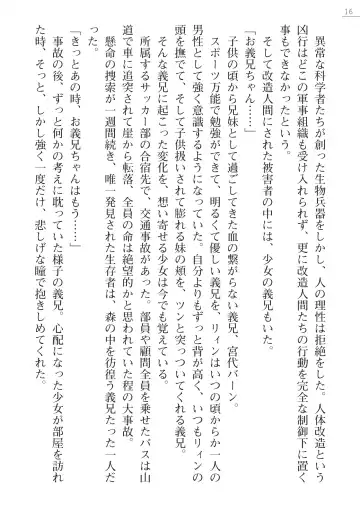 16
異常な科学者たちが創った生物兵器をしかし、人の理性は拒絶をした。人体改造という
凶行はどこの軍事組織も受け入れられず、更に改造人間たちの行動を完全な制御下に置く
事もできなかったという。
そして改造人間にされた被害者の中には、少女の義兄もいた。
「お義兄ちゃん……」
子供の頃から兄妹として過ごしてきた血の繋がらない義兄、宮代バーン。
スポーツ万能で勉強ができて、明るくて優しい義兄を、リィンはいつの頃からか一人の
男性として強く意識するようになっていた。自分よりもずっと背が高く、いつもリィンの
頭を撫でて、そして子供扱いされて膨れる妹の頬を、ツンと突っついてくれる義兄。
そんな義兄に起こった変化を、想いを寄せる少女は今でも覚えている。
所属するサッカー部の合宿先で、交通事故があった。部員や顧問全員を乗せてたバスは山
道で車に追突されて崖から転落、全員の命は絶望的かと思われていた程の大事故。
懸命の捜索が一週間続き、唯一発見された生存者は、森の中を彷徨う義兄たった一人だ
った。
「きっとあの時、お義兄ちゃんはもう……」
事故の後、ずっと何かの考えに耽っていた様子の義兄。心配になった少女が部屋を訪れ
た時、そっと、しかし強く一度だけ、悲しげな瞳で抱きしめてくれた。